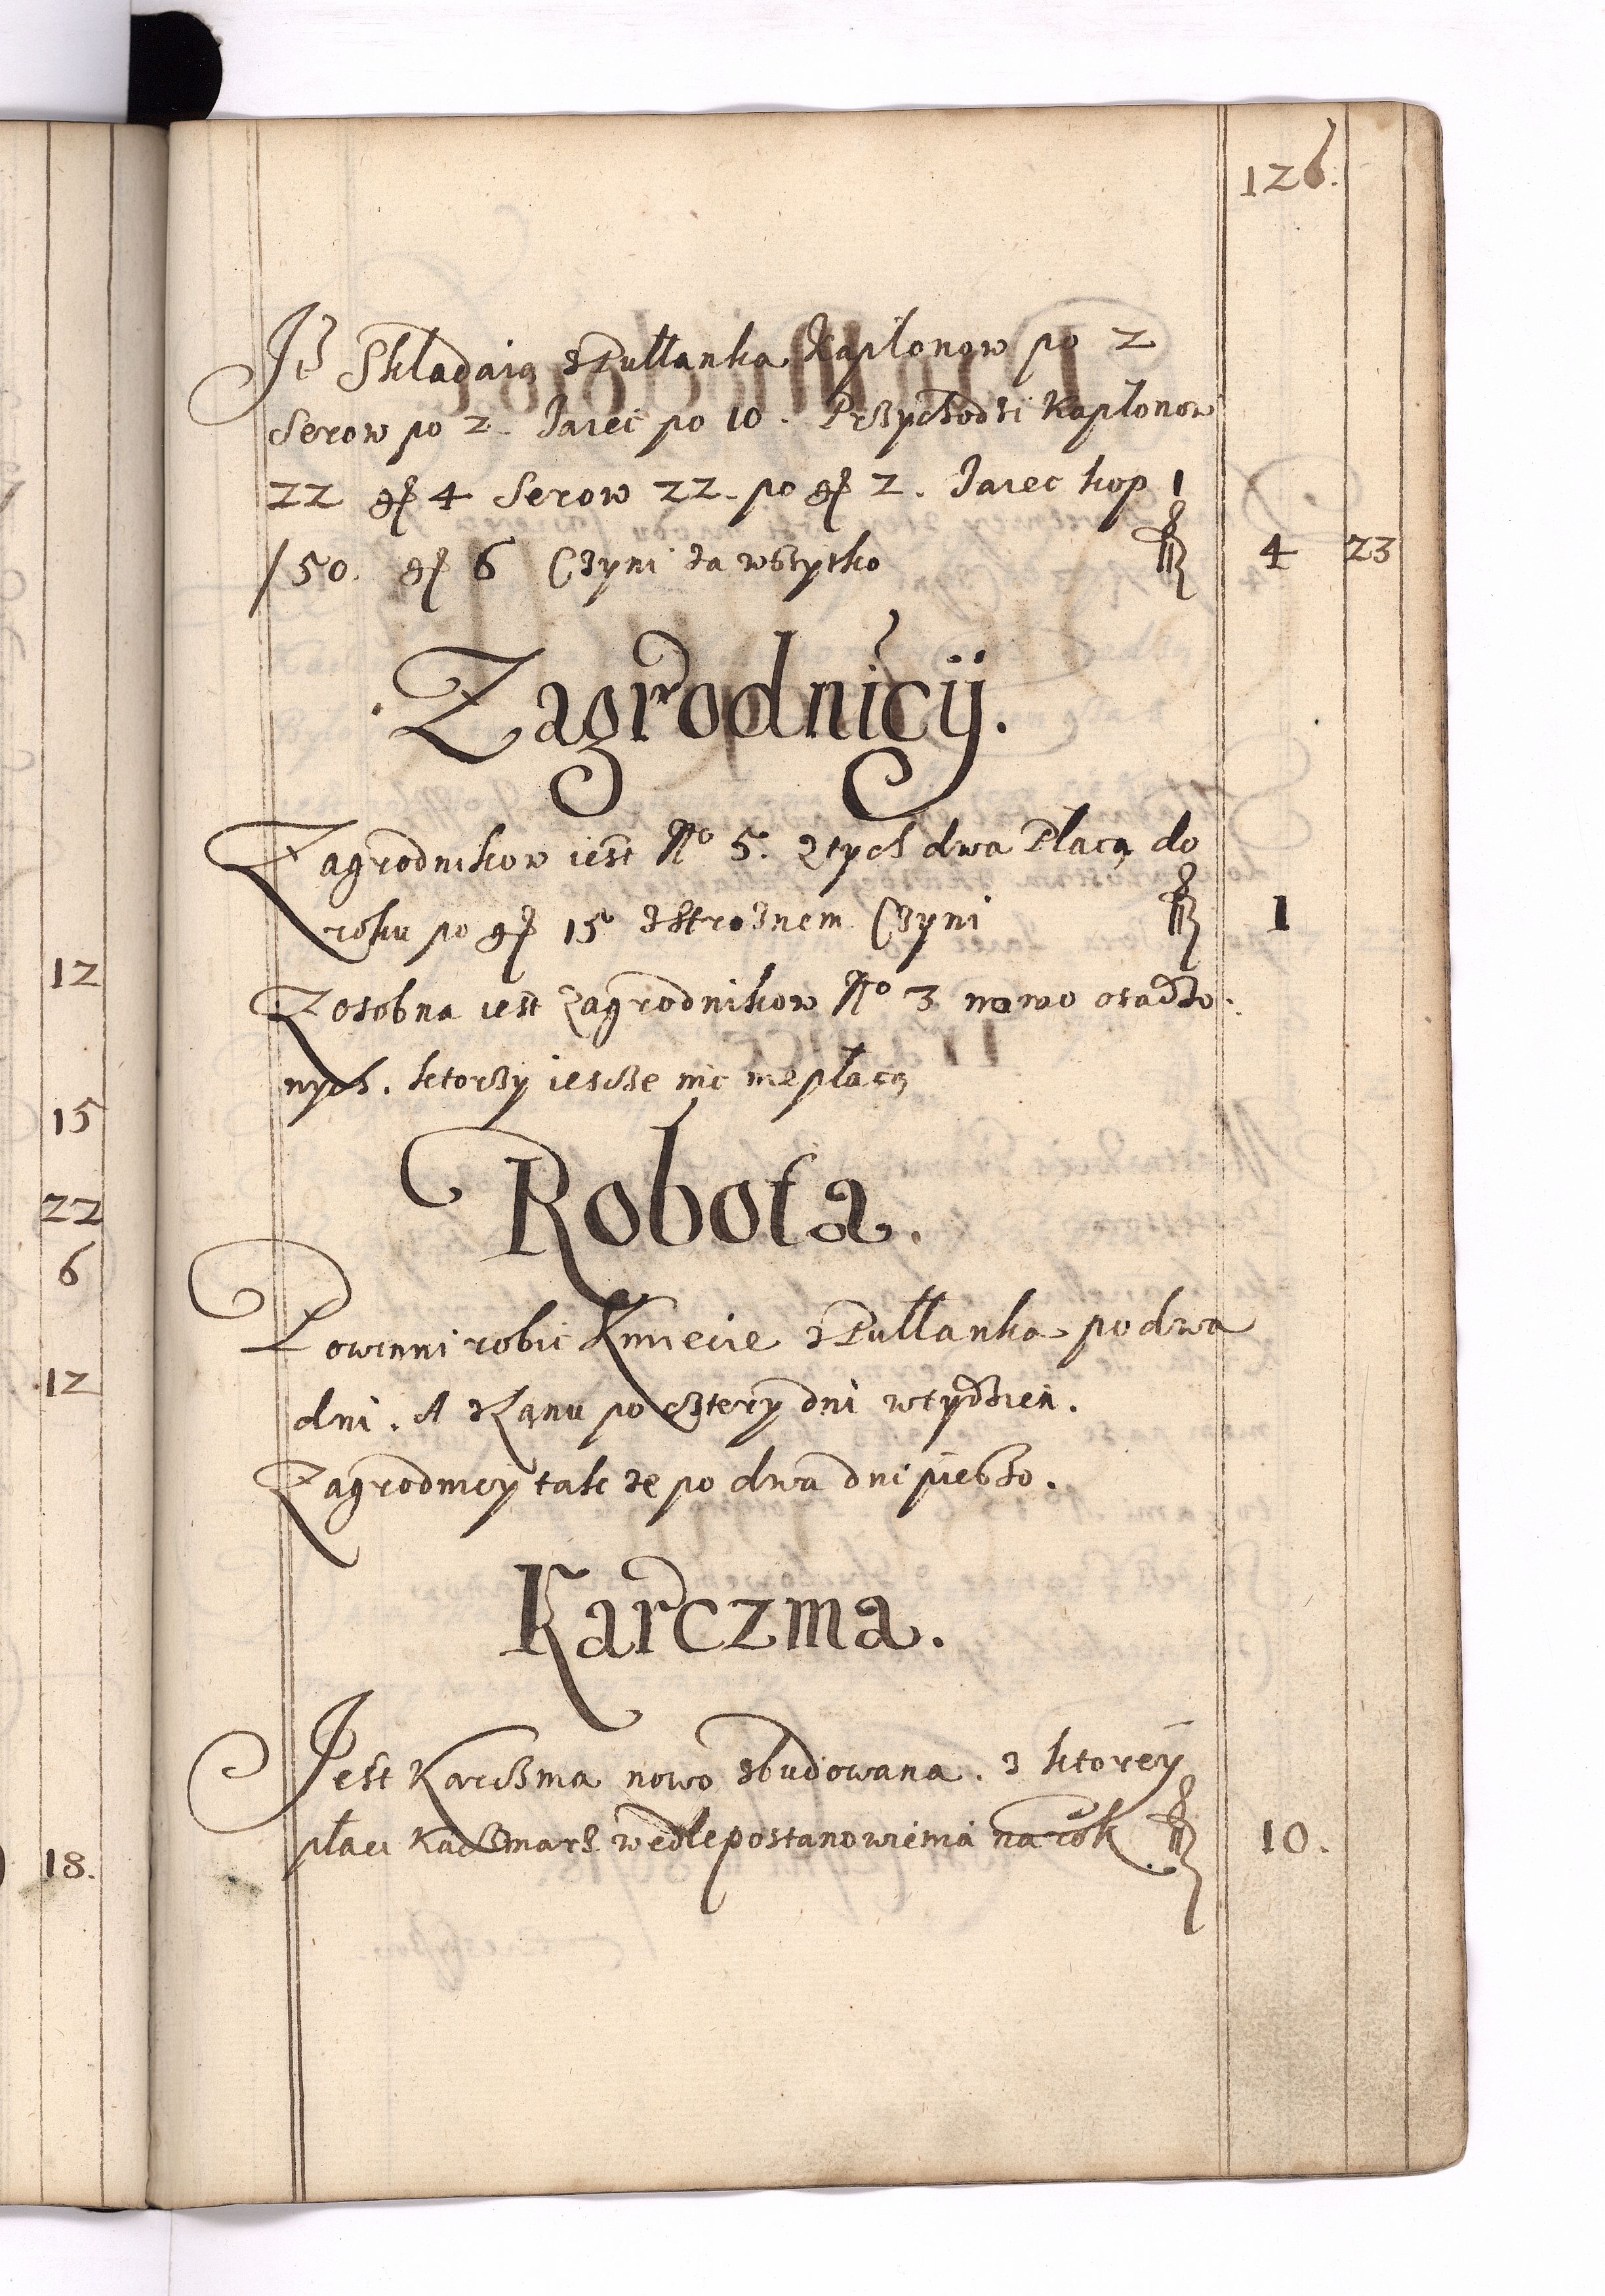 126.
Iż Składaią z Pułłanka Kapłonow po 2
Serow po 2. Iaiec po 10. Przychodzi Kapłonow
22 gr 4 Serow 22. po gr 2. Iaiec kop 1
/50. gr 6 Czyni za wszytko fl 4 23
Zagrodnicÿ.
Zagrodnikow iest No 5. z tych dwa Płacą do
roku po gr 15 z Strożnem Czyni fl 1
Zosobna iest Zagrodnikow No 3 nowo osadzo.
nych. ktorzy iescze nic nie płacą
Robota.
Powinni robić Kmiecie z Pułłanka po dwa
dni. A z Łanu po cztery dni w tydzień.
Zagrodnicy takze po dwa dni pieszo.
Karczma.
Iest Karczma nowo zbudowana. z ktorey
płaci Kaczmarz wedle postanowienia na rok fl 10.
12
15
22
6
12
18.